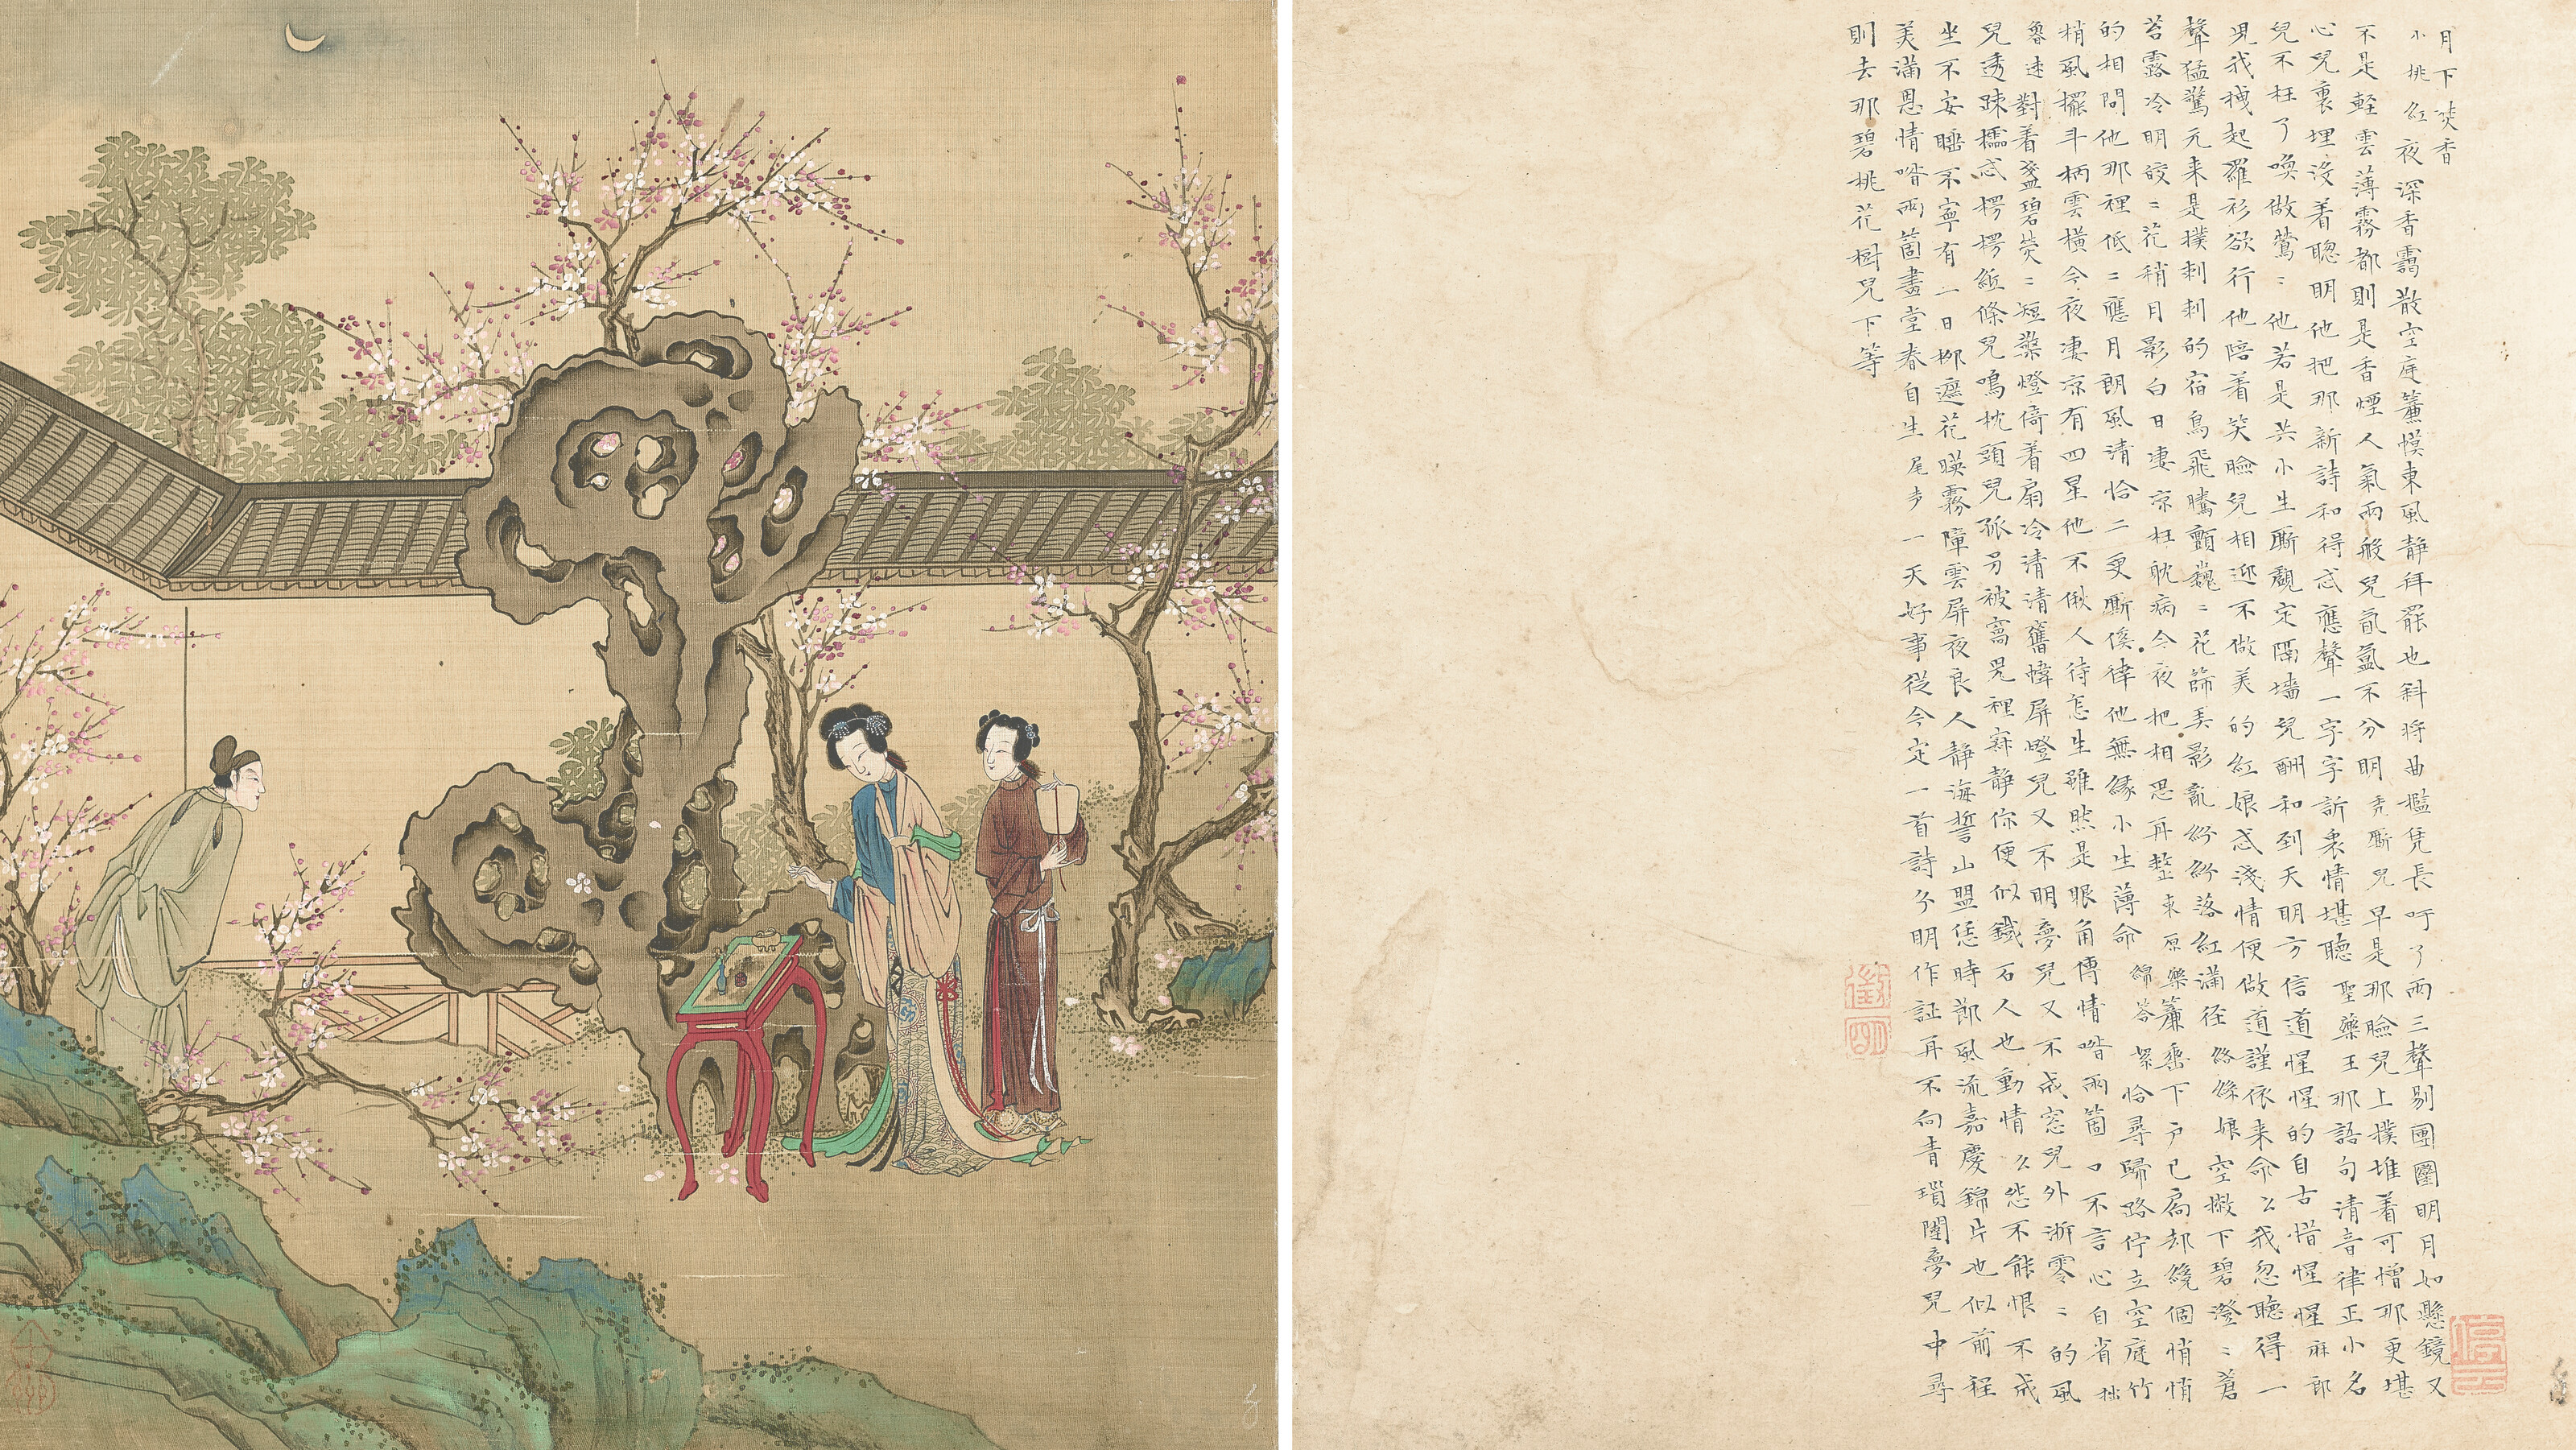 月下焚香
小桃紅夜深香靄散空庭簾幙東風静拜罷也斜將曲檻凭長吁了兩三聲剔團圞明月如懸鏡又
不是輕雲薄霧都則是香煙人氣兩般兒氤氲不分明禿厮兒早是那臉兒上撲堆着可憎那更堪
心兒裏埋没着聰明他把那新詩和得忒應聲一字字訴衷情堪聽聖藥王那語句清音律正小名
兒不枉了喚做鶯〻他若是共小生厮覷定隔墻兒酬和到天明方信道惺惺的自古惜惺惺麻郎
児我拽起羅衫欲行他陪着笑臉兒相迎不做美的紅娘忒淺情便做道謹依来命么我忽聽得一
聲猛驚元来是撲剌剌的宿鳥飛騰顫巍〻花篩弄影亂紛紛落紅滿徑絡絲娘空撇下碧澄〻蒼
苔露冷明皎〻花稍月影白日凄凉枉躭病今夜把相思再整東原樂簾垂下戶已扃却纔個悄悄
的相問他那裡低〻應月朗風清恰二更厮傒倖他無緣小生薄命綿荅絮恰尋歸路佇立空庭竹
稍風擺斗柄雲横今夜凄凉有四星他不偢人待怎生雖然是眼角傳情喒兩箇口不言心自省拙
魯速對着盞碧熒〻短檠燈倚着扇冷清清舊幃屏燈兒又不明夢兒又不成窓兒外淅零〻的風
兒透踈櫺忒楞楞紙條兒鳴枕頭兒孤另被窩兒裡寂静你便似鐵石人也動情么怨不能恨不成
坐不安睡不寧有一日栁遮花暎霧障雲屏夜良人静海誓山盟恁時節風流嘉慶錦片也似前程
美滿恩情喒兩箇畫堂春自生尾声一天好事從今定一首詩分明作証再不向青瑣闥夢兒中尋
則去那碧桃花樹兒下等
徵明
停雲